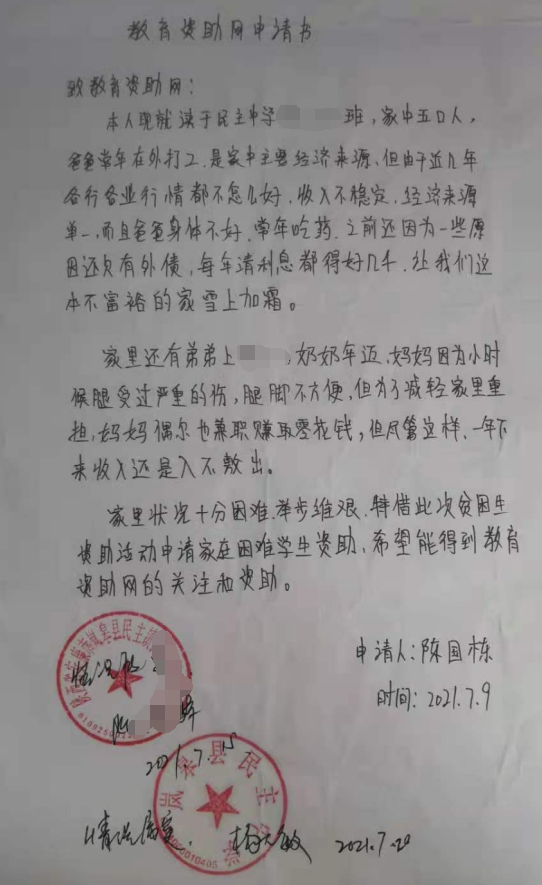 教育资助网申请书
致教育资助网：
本人现就读于民主中学 班，家中五口人，
爸爸常年在外打工，是家中主要经济来源、但由于近几年
各行各业行情都不怎么好，收入不稳定，经济来源
单一，而且爸爸身体不好，常年吃药，之前还因为一些原
因还欠有外债，每年清利息都得好几千，让我们这
本不富裕的家雪上加霜。
家里还有弟弟上 ，奶奶年迈、妈妈因为小时
候腿受过严重的伤，腿脚不方便，但为了减轻家里重
担，妈妈偶尔也兼职赚取零花钱，但尽管这样、一年下
来收入还是入不敷出。
家里状况十分困难、举步维艰，特借此次贫困生
资助活动申请家在困难学生资助、希望能得到教育
资助网的关注和资助。
申请人：陈国栋
时间：2021.7.9
情况属实
2021.7.15
岚皋县民主
情况属实
2021.7.20